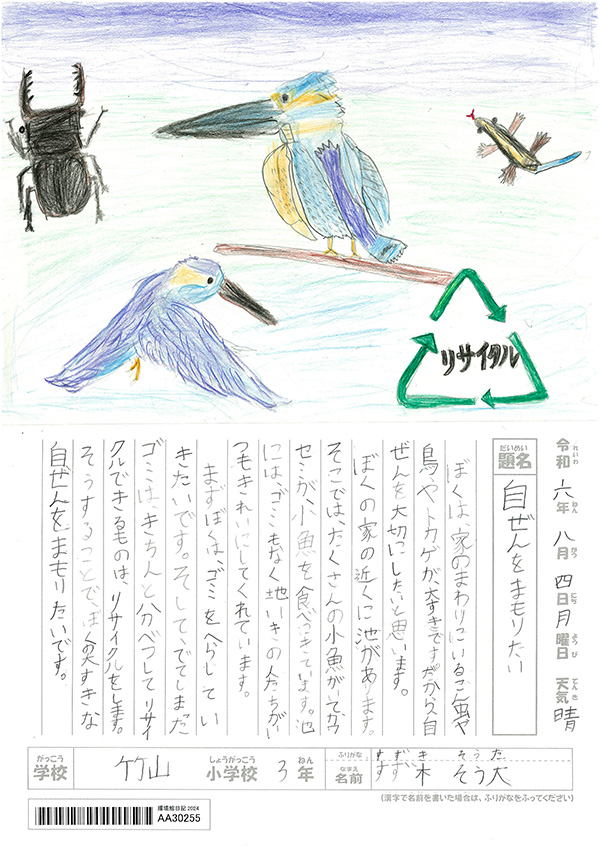 リサイクル
令和六年八月四日月曜日 天気晴
れいわ ねん がつ にち ようび てんき
だいめい
題名
自ぜんをまもりたい
ぼくは、家のまわりにいるこん虫や
鳥やトカゲが、大すきです。だから、自
ぜんを大切にしたいと思います。
ぼくの家の近くに池があります。
そこでは、たくさんの小魚がいてカワ
セミが、小魚を食べにきています。池
には、ゴミもなく地いきの人たちがい
つもきれいにしてくれています。
まずぼくは、ゴミをへらしてい
きたいです。そして、でてしまった
ゴミは、きちんと分べつしてリサイ
クルできるものは、リサイクルをします。
そうすることで、ぼくの大すきな
自ぜんをまもりたいです。
がっこう
学校
竹山
しょうがっこう
小学校
3
ねん
年
ふりがな
すずき そうた
なまえ
名前
すず木 そう大
(漢字で名前を書いた場合は、ふりがなをふってください)
環境絵日記 2024
AA30255